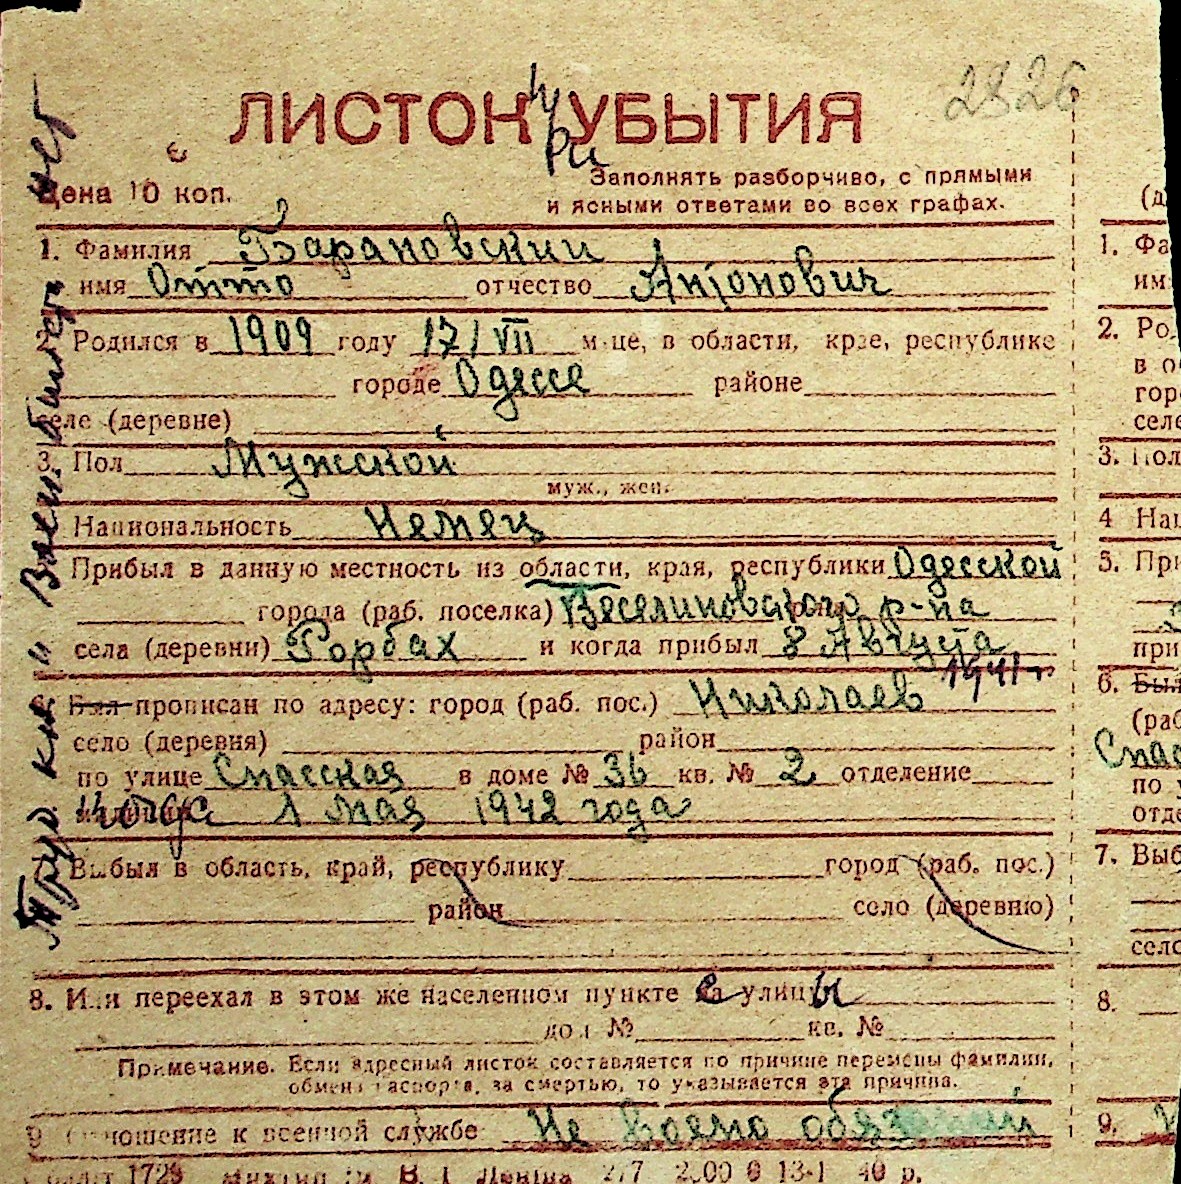 2826
ЛИСТОК УБЫТИЯ
При
Цена 10 коп.
Заполнять разборчиво, с прямыми
и ясными ответами во всех графах.
1. Фамилия Барановский
имя Отто отчество Антонович
2. Родился в 1909 году 17/VII м-це, в области, крае, республике
городе Одессе районе
селе (деревне)
3. Пол Мужской
муж., жен.
Национальность Немец
Прибыл в данную местность из области, края, республики Одесской
города (раб. поселка) Веселиновского р-на
села (деревни) Рорбах и когда прибыл 8 Августа
1941 г.
6. Был прописан по адресу: город (раб. пос.) Николаев
село (деревня) район
по улице Спасская в доме № 36 кв. № 2 отделение
милиции 1 Мая 1942 года
Выбыл в область, край, республику город (раб. пос.)
район село (деревню)
8. Или переехал в этом же населенном пункте с улицы
дом № кв. №
Примечание. Если адресный листок составляется по причине перемены фамилии,
обмена паспорта, за смертью, то указывается эта причина.
9 Отношение к военной службе Не военно обязанный
1729 В. І. Леніна 2/7 2.00 0 13-1 40 р.
Труд. кн. и Воен. билета нет
(д
1. Фа
им
2. Ро
в о
гор
селе
3. Пол
4 Нац
5. При
при
6. Был
(раб
Спас
по у
отде
7. Выб
село
8.
9.